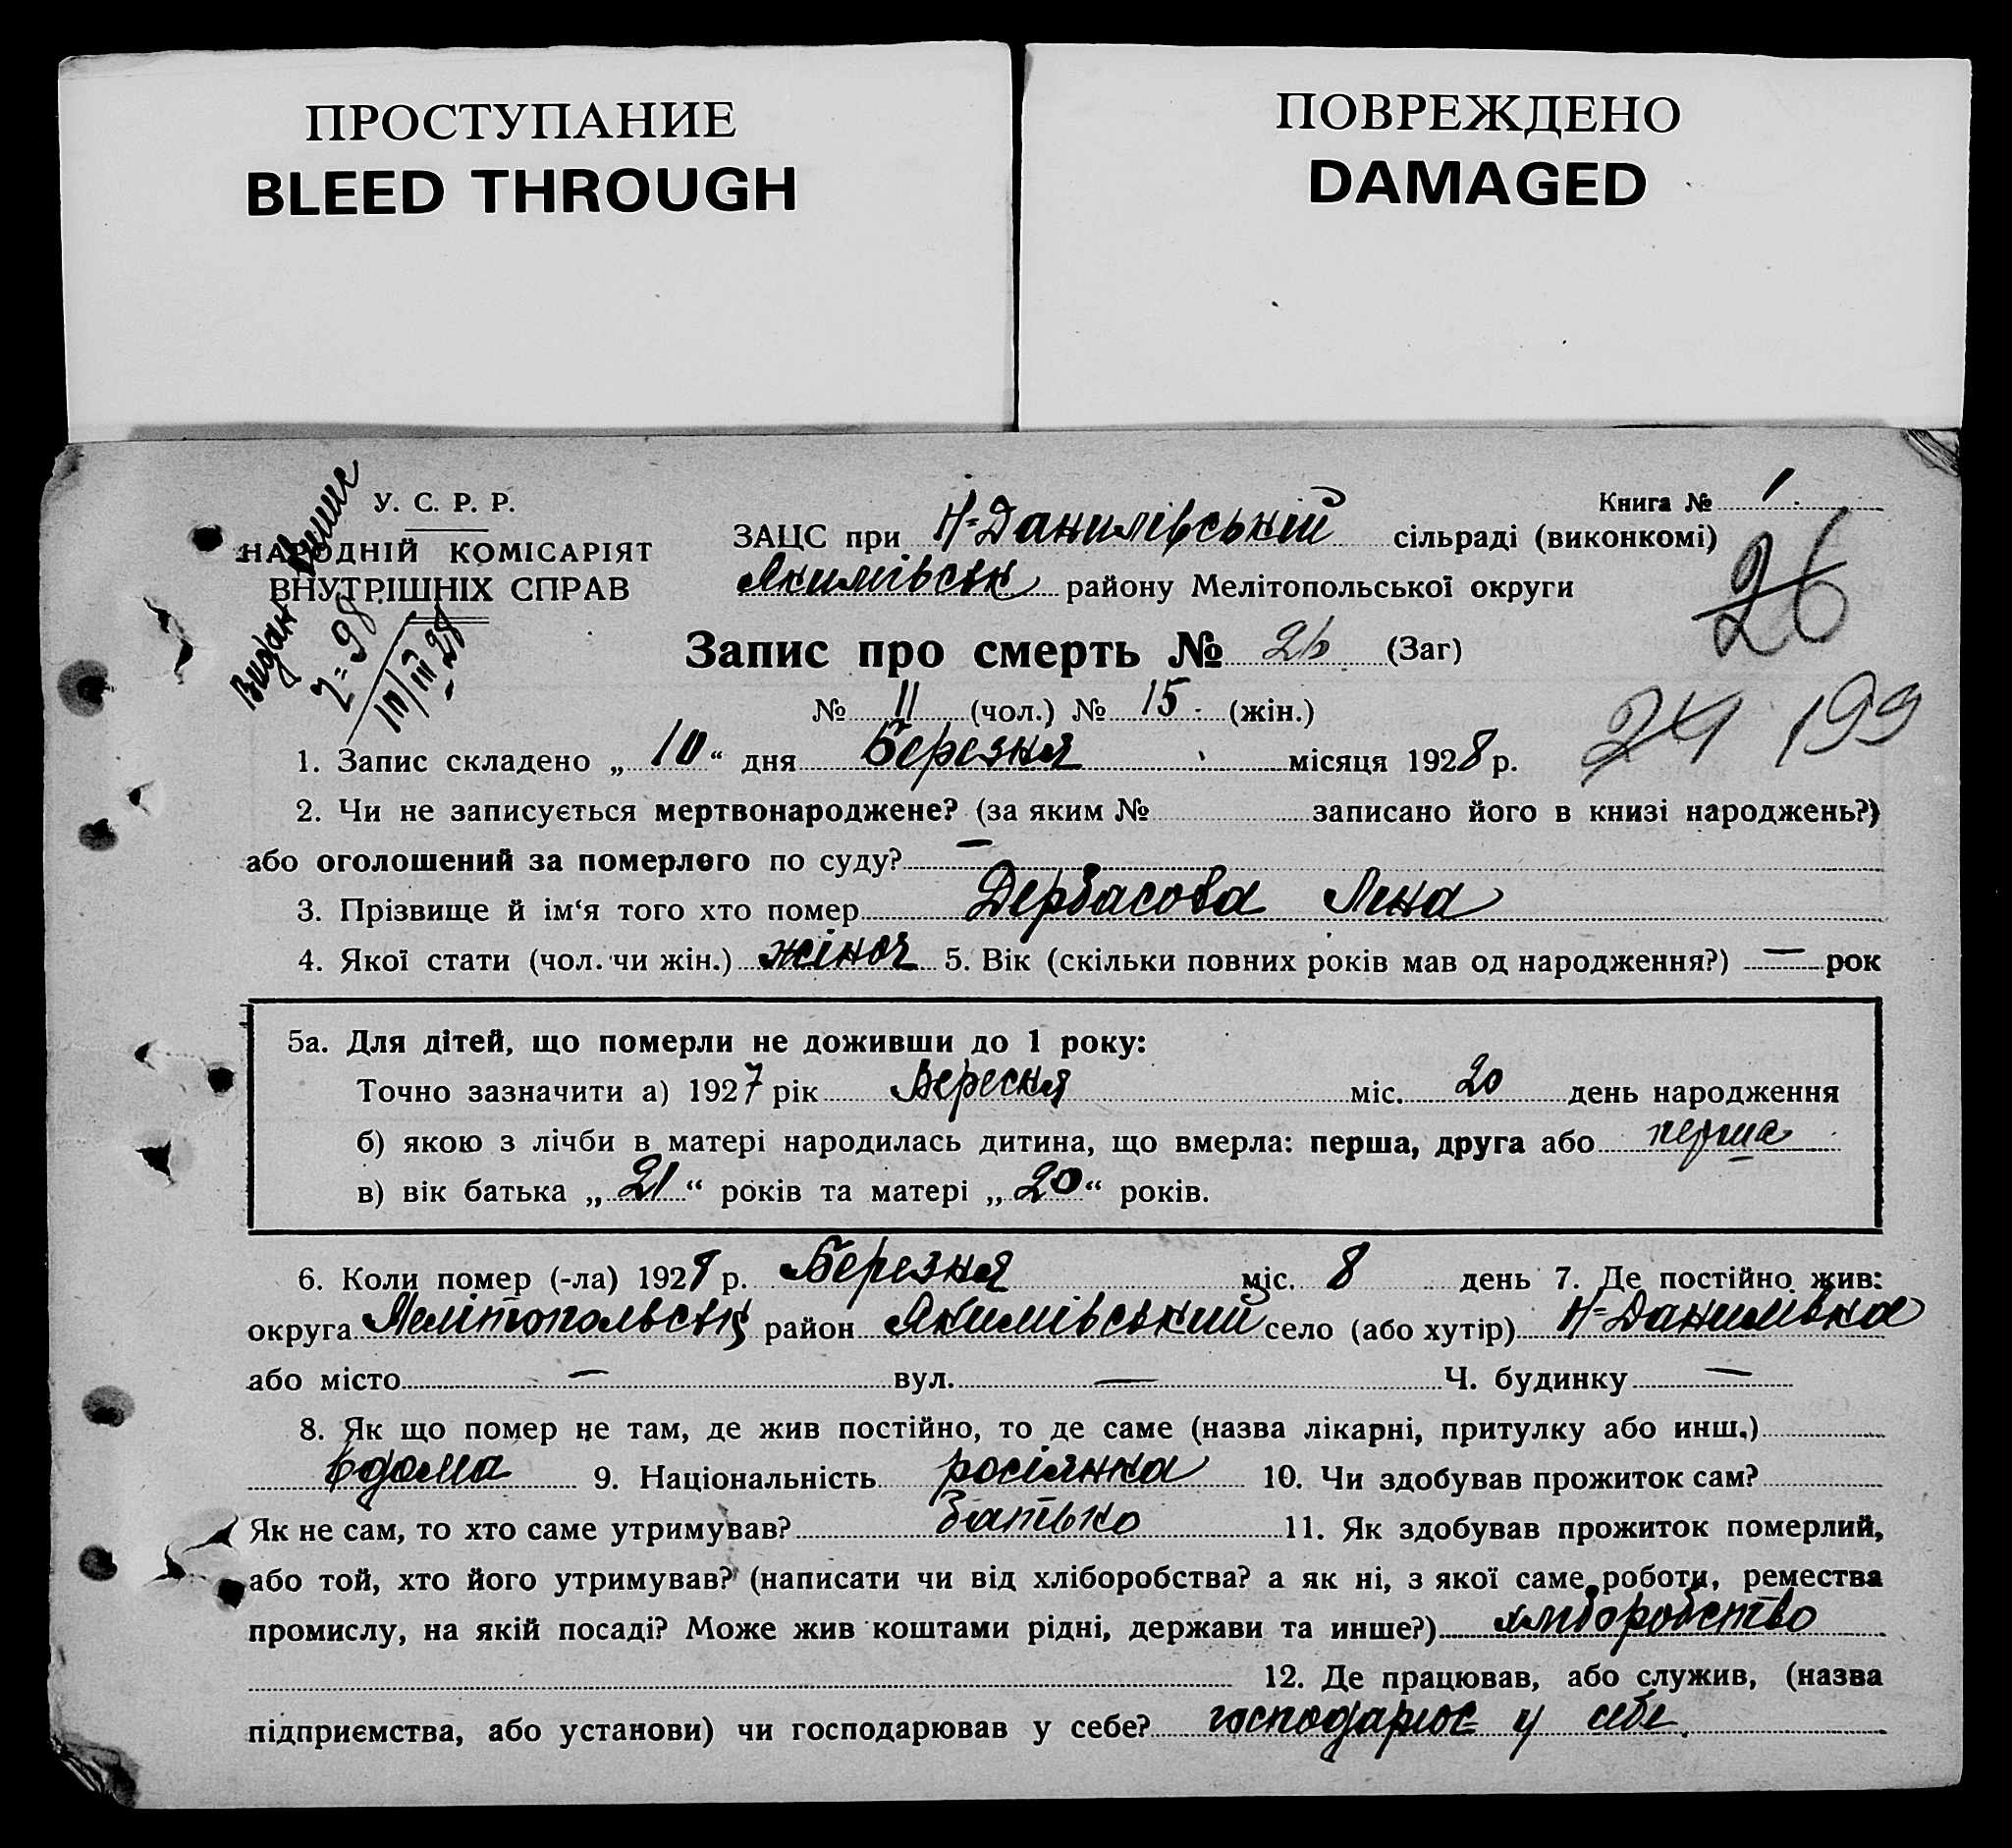 ПРОСТУПАНИЕ
BLEED THROUGH
ПОВРЕЖДЕНО
DAMAGED
У. С. Р. Р.
НАРОДНІЙ КОМІСАРІЯТ
ВНУТРІШНІХ СПРАВ
Видан
№ 98
10/III 28
Книга № 1
ЗАЦС при Н-Данилівській сільраді (виконкомі)
Якимівськ району Мелітопольської округи
26
Запис про смерть № 26 (Заг)
№ 11 (чол.) № 15 (жін.)
24 199
1. Запис складено „ 10 “ дня Березня місяця 1928 р.
2. Чи не записується мертвонароджене? (за яким № записано його в книзі народжень?)
або оголошений за померлого по суду? —
3. Прізвище й ім‘я того хто помер Дербасова Ліна
4. Якої стати (чол. чи жін.) жіноч 5. Вік (скільки повних років мав од народження?) — рок
5а. Для дітей, що померли не доживши до 1 року:
Точно зазначити а) 1927 рік Вересня міс. 20 день народження
б) якою з лічби в матері народилась дитина, що вмерла: перша, друга або перша
в) вік батька „ 21 “ років та матері „ 20 “ років.
6. Коли помер (-ла) 1928 р. Березня міс. 8 день 7. Де постійно жив:
округа Мелітопольськ район Якимівський село (або хутір) Н-Данилівка
або місто — вул. — Ч. будинку —
8. Як що помер не там, де жив постійно, то де саме (назва лікарні, притулку або инш.)
вдома 9. Національність росіянка 10. Чи здобував прожиток сам?
Як не сам, то хто саме утримував? батько 11. Як здобував прожиток померлий,
або той, хто його утримував? (написати чи від хліборобства? а як ні, з якої саме роботи, ремества
промислу, на якій посаді? Може жив коштами рідні, держави та инше?) хліборобство
12. Де працював, або служив, (назва
підприємства, або установи) чи господарював у себе? господарює у себе.